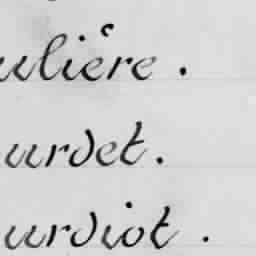 ulière .
urdet .
urdiot .